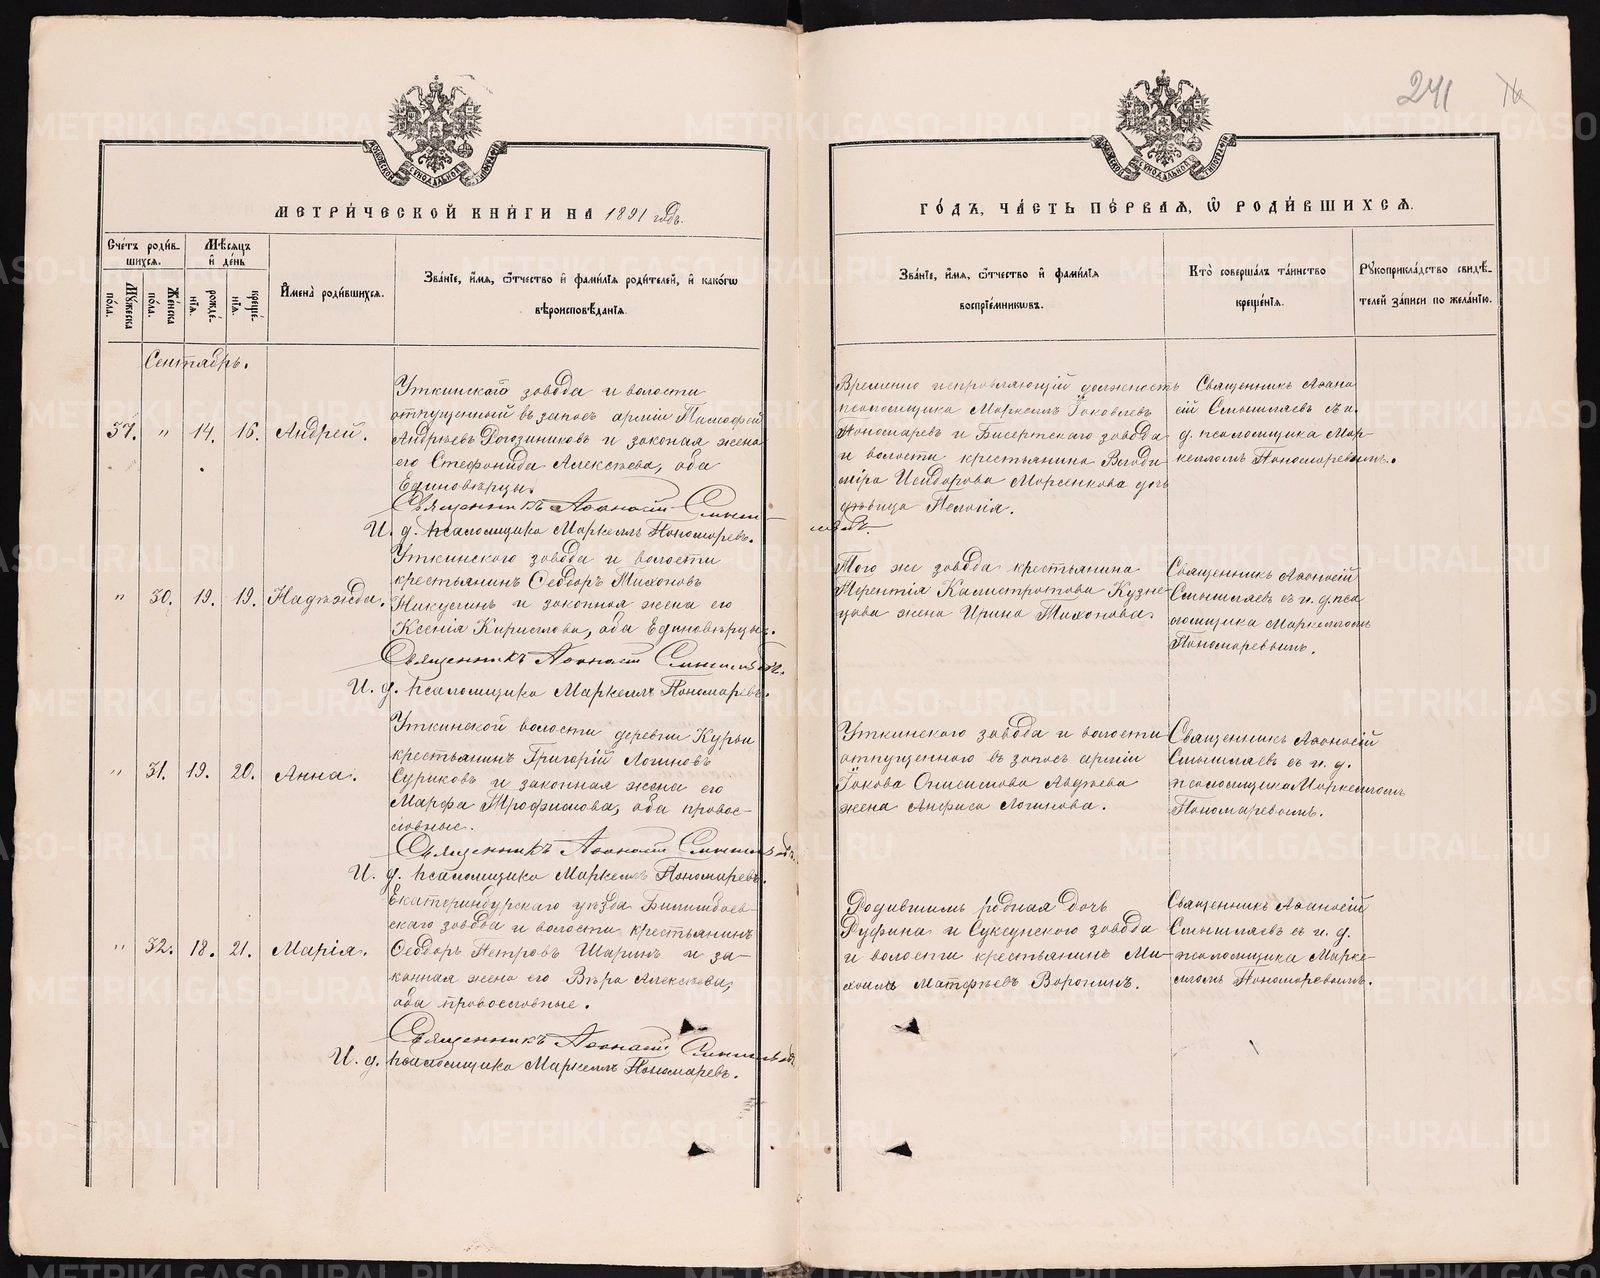 241
МЕТРИ́ЧЕСКОЙ КНИ́ГИ НА 1891 годъ.
ГО́ДЪ, ЧА́СТЬ ПЕ́РВАЯ, Ѡ РОДИ́ВШИХСЯ.
Счетъ роди́в-
шихся.
Му́жеска по́ла.
Же́нска по́ла.
Мѣ́сяцъ
и́ де́нь
рожде́-
нія.
креще́-
нія.
И́мена̀ роди́вшихся.
Зва́ніе, и́мя, ѻ́тчество и́ фами́лія роди́телей, и́ како́гѡ
вѣроисповѣ́данія.
Зва́ніе, и́мя, ѻ́тчество и́ фами́лія
воспріе́мниковъ.
Кто̀ соверша́лъ та́инство
креще́нія.
Рꙋкоприкла́дство свидѣ́-
телей за́писи по жела́нію.
Сентябрь.
37. " 14. 16. Андрей.
Уткинскаго завода и волости
отпущенный въ запасъ арміи Тимофей
Андрѣевъ Рогозинниковъ и законая жена
его Стефанида Алексѣева, оба
Единовѣрцы.
Священникъ Аѳанасій Смыш-
ляевъ
И. д. псаломщика Маркеллъ Пономаревъ.
Временно исправляющій должность
псаломщика Маркеллъ Іаковлевъ
Пономаревъ и Бисертскаго завода
и волости крестьянина Влади-
міра Исидорова Морсенкова дочь
дѣвица Пелагія.
Священникъ Аѳана-
сій Смышляевъ съ и.
д. псаломщика Мар-
келломъ Пономаревымъ.
" 30. 19. 19. Надѣжда.
Уткинскаго завода и волости
крестьянинъ Ѳеодоръ Тихоновъ
Никулинъ и законная жена его
Ксенія Кирилова, оба Единовѣрцы.
Священникъ Аѳанасій Смышляевъ.
И. д. псаломщика Маркеллъ Пономаревъ.
Того же завода крестьянина
Терентія Калистратова Кузне-
цова жена Ирина Тихонова.
Священникъ Аѳанасій
Смышляевъ съ и. д. пса-
ломщика Маркелломъ
Пономаревымъ.
" 31. 19. 20. Анна.
Уткинской волости деревни Курьи
крестьянинъ Григорій Логиновъ
Суриковъ и законная жена его
Марфа Трофимова, оба право-
славные.
Священникъ Аѳанасій Смышляевъ.
И. д. псаломщика Маркеллъ Пономаревъ.
Уткинскаго завода и волости
отпущеннаго въ запасъ арміи
Іакова Онисимова Авдѣева
жена Анфиса Логинова.
Священникъ Аѳанасій
Смышляевъ съ и. д.
псаломщика Маркелломъ
Пономаревымъ.
" 32. 18. 21. Марія.
Екатеринбургскаго уѣзда Билимбаев-
скаго завода и волости крестьянинъ
Ѳеодоръ Петровъ Шаринъ и за-
конная жена его Вѣра Алексѣева,
оба православные.
Священникъ Аѳанасій Смышляевъ
И. д. псаломщика Маркеллъ Пономаревъ.
Родившимъ родная дочь
Руфина и Суксунскаго завода
и волости крестьянинъ Ми-
хаилъ Матфѣевъ Воронинъ.
Священникъ Аѳанасій
Смышляевъ съ и. д.
псаломщика Марке-
ломъ Пономаревымъ.